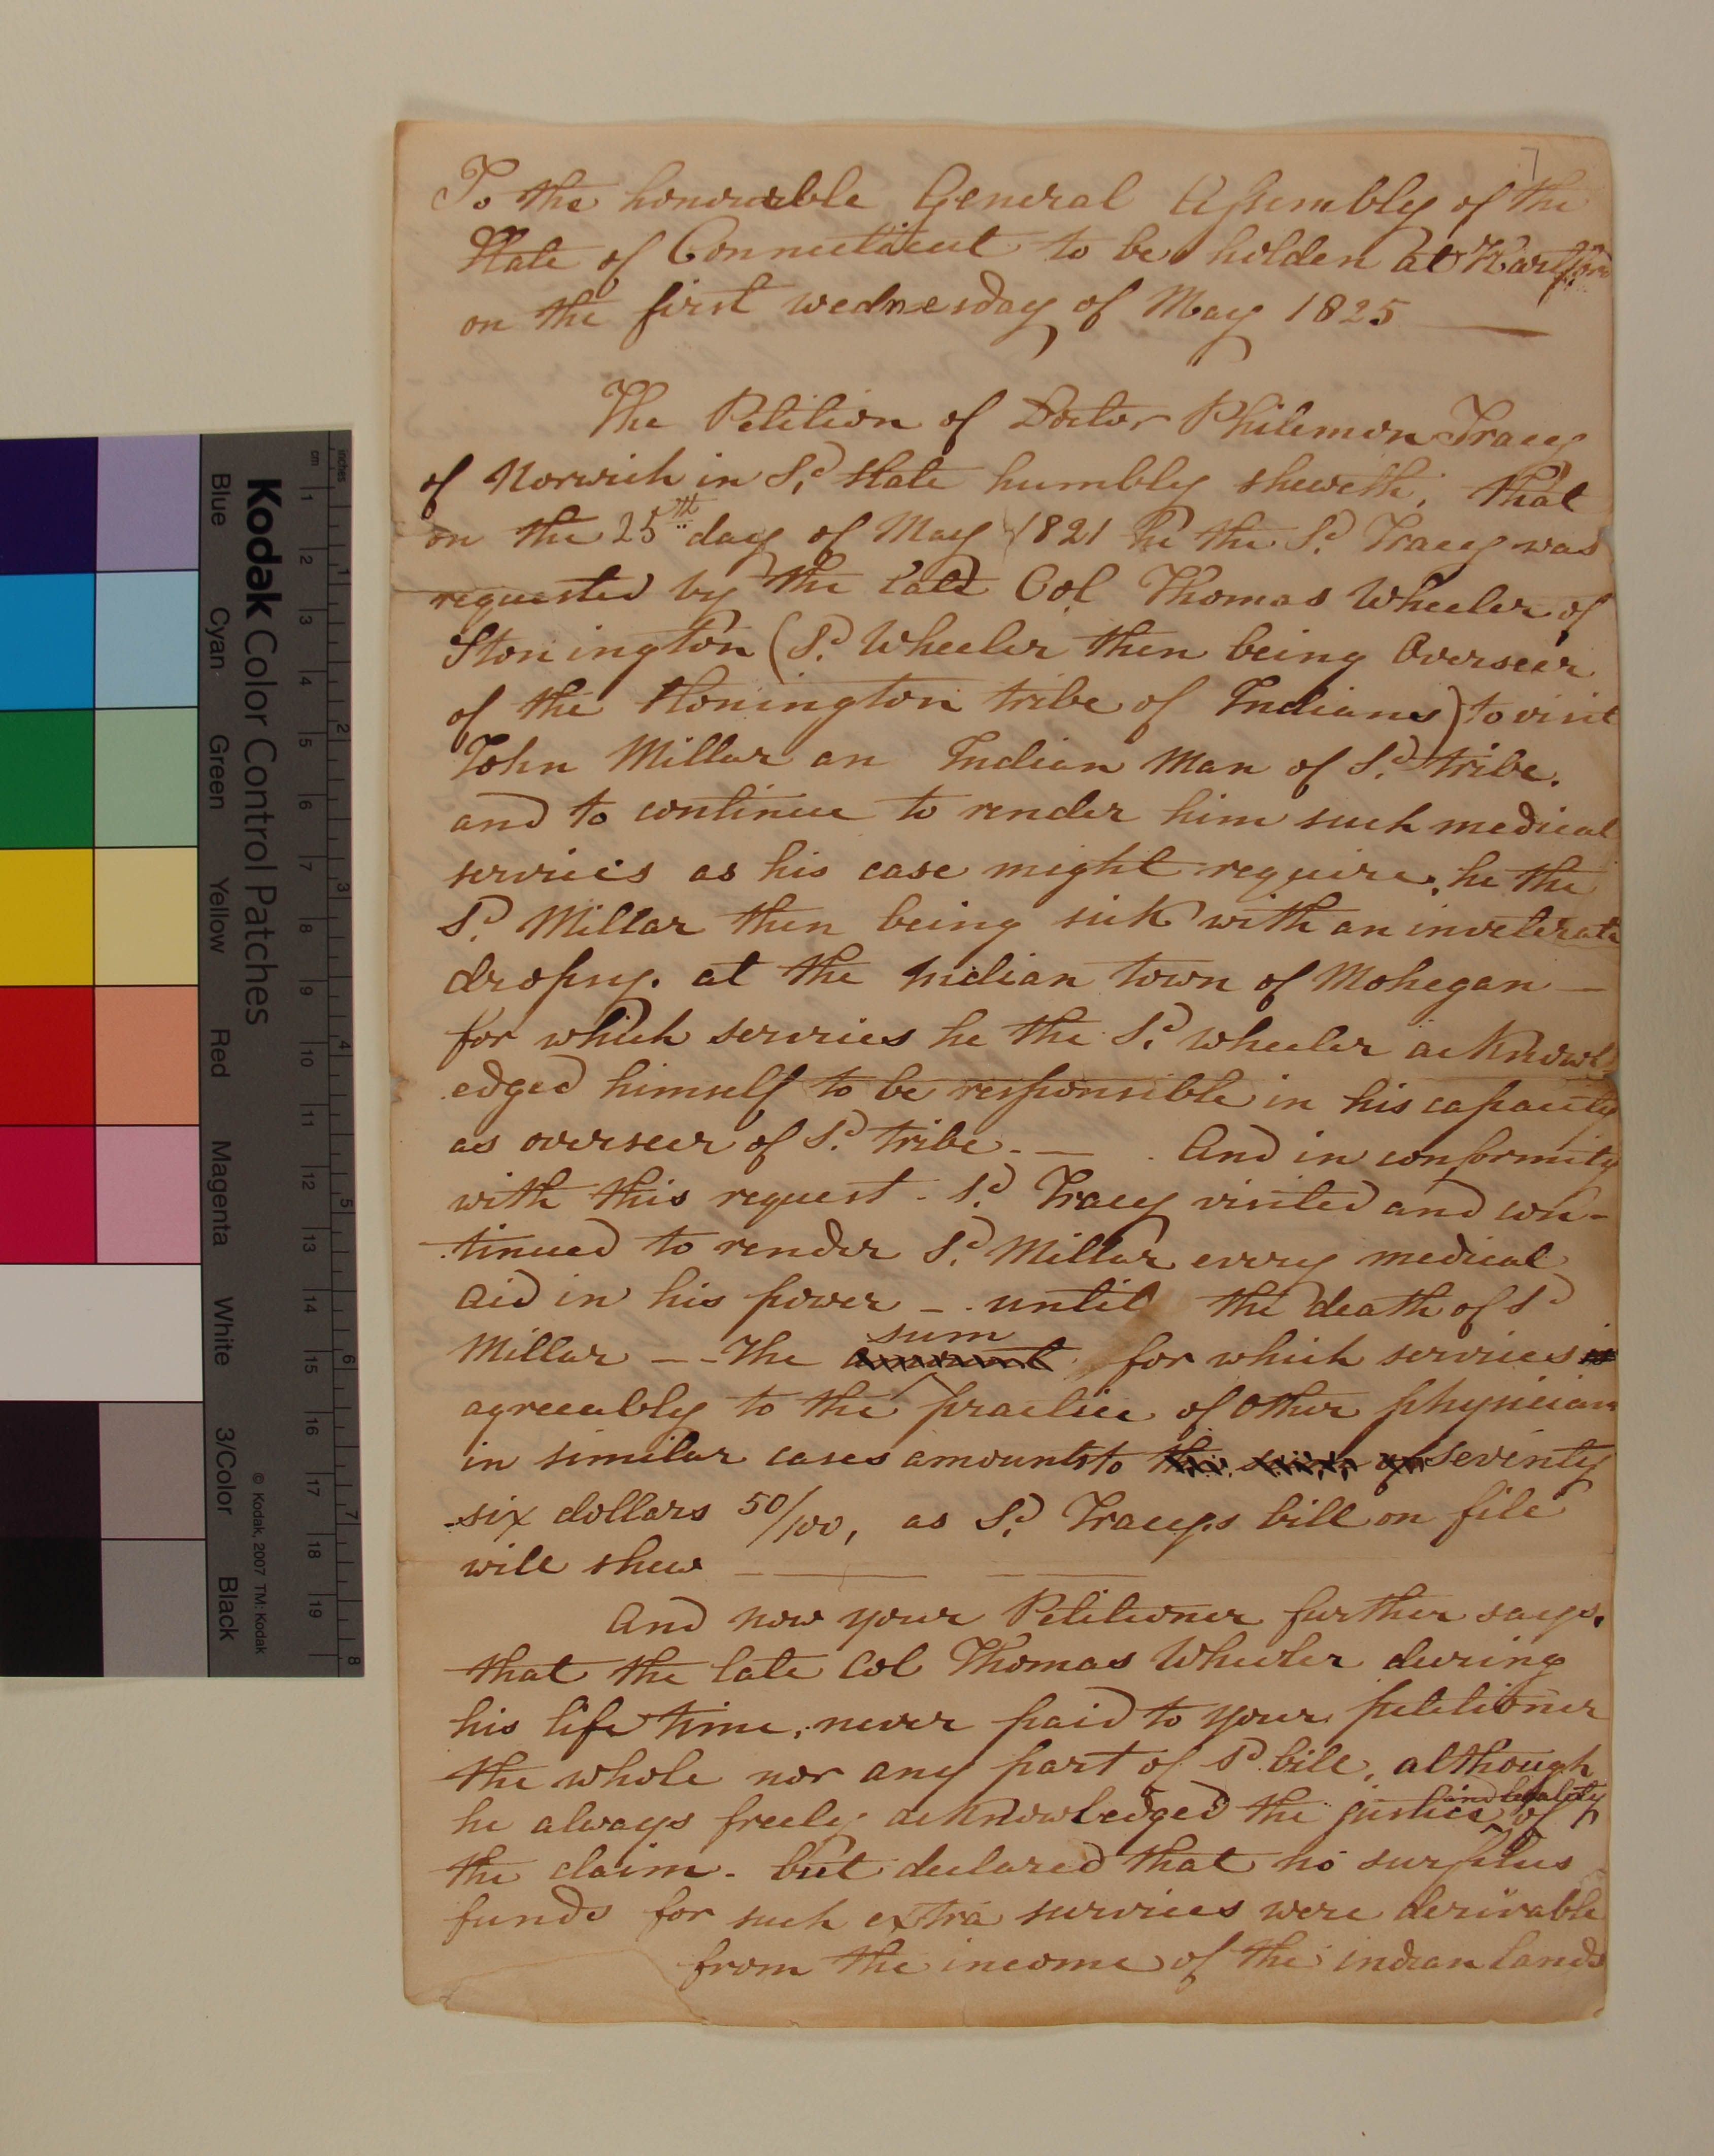 To the honourable General Assembly of the
State of Connecticut to be holden at Hartford
on the first wednesday of May 1825
The Petition of Doctor Philemon Tracy
of Norwich in Sd. State humbly sheweth, that
on the 25th day of May 1821 he the Sd. Tracy was
requested by the late Col Thomas Wheeler of
Stonington (Sd. Wheeler then being Overseer
of the Stonington tribe of Indians) to visit
John Millar an Indian Man of Sd. tribe.
and to continue to render him such medical
services as his case might require, he the
Sd. Millar then being sick with an inveterate
dropsy. at the indian town of Mohegan —
for which services he the Sd. Wheeler acknowl-
edged himself to be responsible in his capacity
as overseer of Sd. tribe. — And in conformity
with this request - Sd. Tracy visited and con-
tinued to render Sd. Millar every medical
aid in his power - until the death of Sd
sum
Millar -- The amount for which services is
agreeably to the practice of Other physicians
in similar cases amounts to the sum of Seventy
six dollars 50/100, as Sd. Tracys bill on file
will shew
And now your Petitioner further says.
that the late Col Thomas Wheeler during
his life time, never paid to your petitioner
the whole nor any part of Sd bill, although
and legality
he always freely acknowledged the justice of
the claim - but declared that no surplus
funds for such extra services were derivable
from the income of the indian lands
Kodak Color Control Patches
Blue Cyan Green Yellow Red Magenta White 3/Color Black
© Kodak, 2007 TM: Kodak
inches 1 2 3 4 5 6 7 8
cm 1 2 3 4 5 6 7 8 9 10 11 12 13 14 15 16 17 18 19